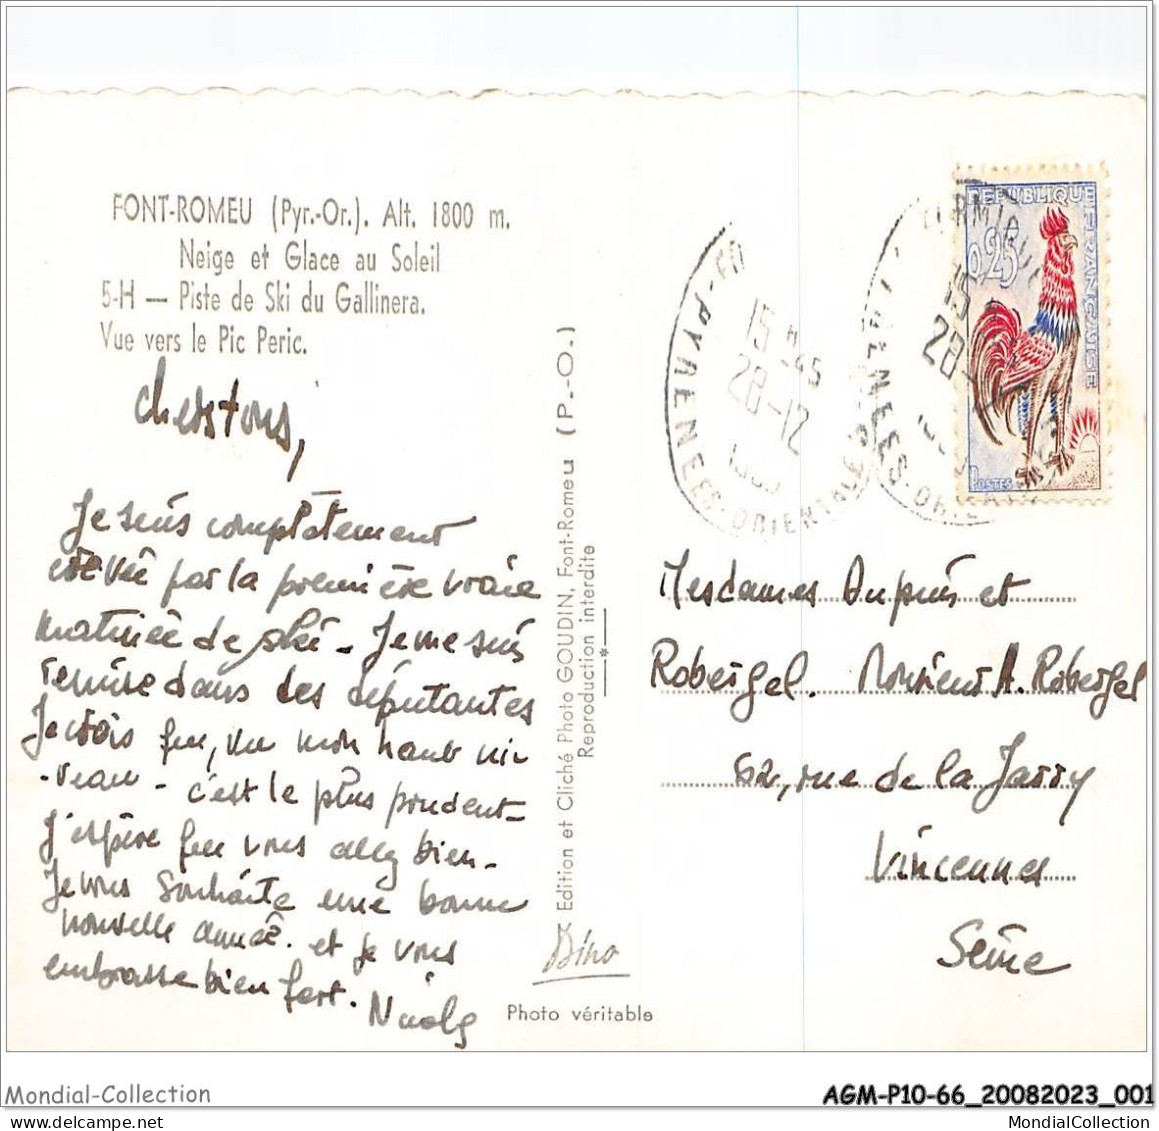 FONT-ROMEU (Pyr.-Or.). Alt. 1800 m.
Neige et Glace au Soleil
5-H — Piste de Ski du Gallinera.
Vue vers le Pic Peric.
Chers tous,
Je suis complètement
crevée par la première vraie
matinée de ski - Je me suis
remise dans les débutantes
Je crois que, vu mon haut ni-
-veau - c'est le plus prudent -
J'espère que vous allez bien -
Je vous souhaite une bonne
nouvelle année. et je vous
embrasse bien fort.
Edition et Cliché Photo GOUDIN, Font-Romeu (P.-O.)
Reproduction interdite
Dino
Photo véritable
PYRENEES-ORIENTALES
15 H45
28-12
REPUBLIQUE FRANCAISE
0,25
POSTES
15
28
Mesdames Dupuis et
Robergel. Monsieur A. Robergel
62, rue de la Jarry
Vincennes
Seine
Mondial-Collection
AGM-P10-66_20082023_001
MondialCollection